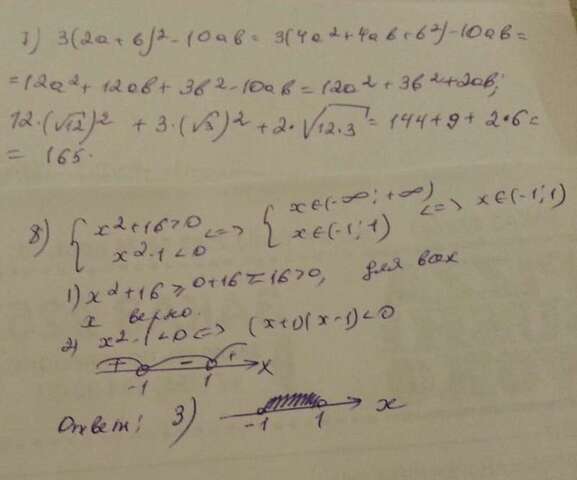 7) 3(2a+b)²-10ab = 3(4a²+4ab+b²)-10ab =
= 12a²+12ab+3b²-10ab = 12a²+3b²+2ab;
12·(√12)² + 3·(√3)² + 2·√12·3 = 144+9+2·6 =
= 165.
8) { x²+16>0 <=> { x∈(-∞;+∞) <=> x∈(-1;1)
x²-1<0 x∈(-1;1)
1) x²+16 ≥ 0+16 = 16>0, для всех
x верно.
2) x²-1<0 <=> (x+1)(x-1)<0
+ - +
-1 1 x
Ответ: 3)
-1 1 x